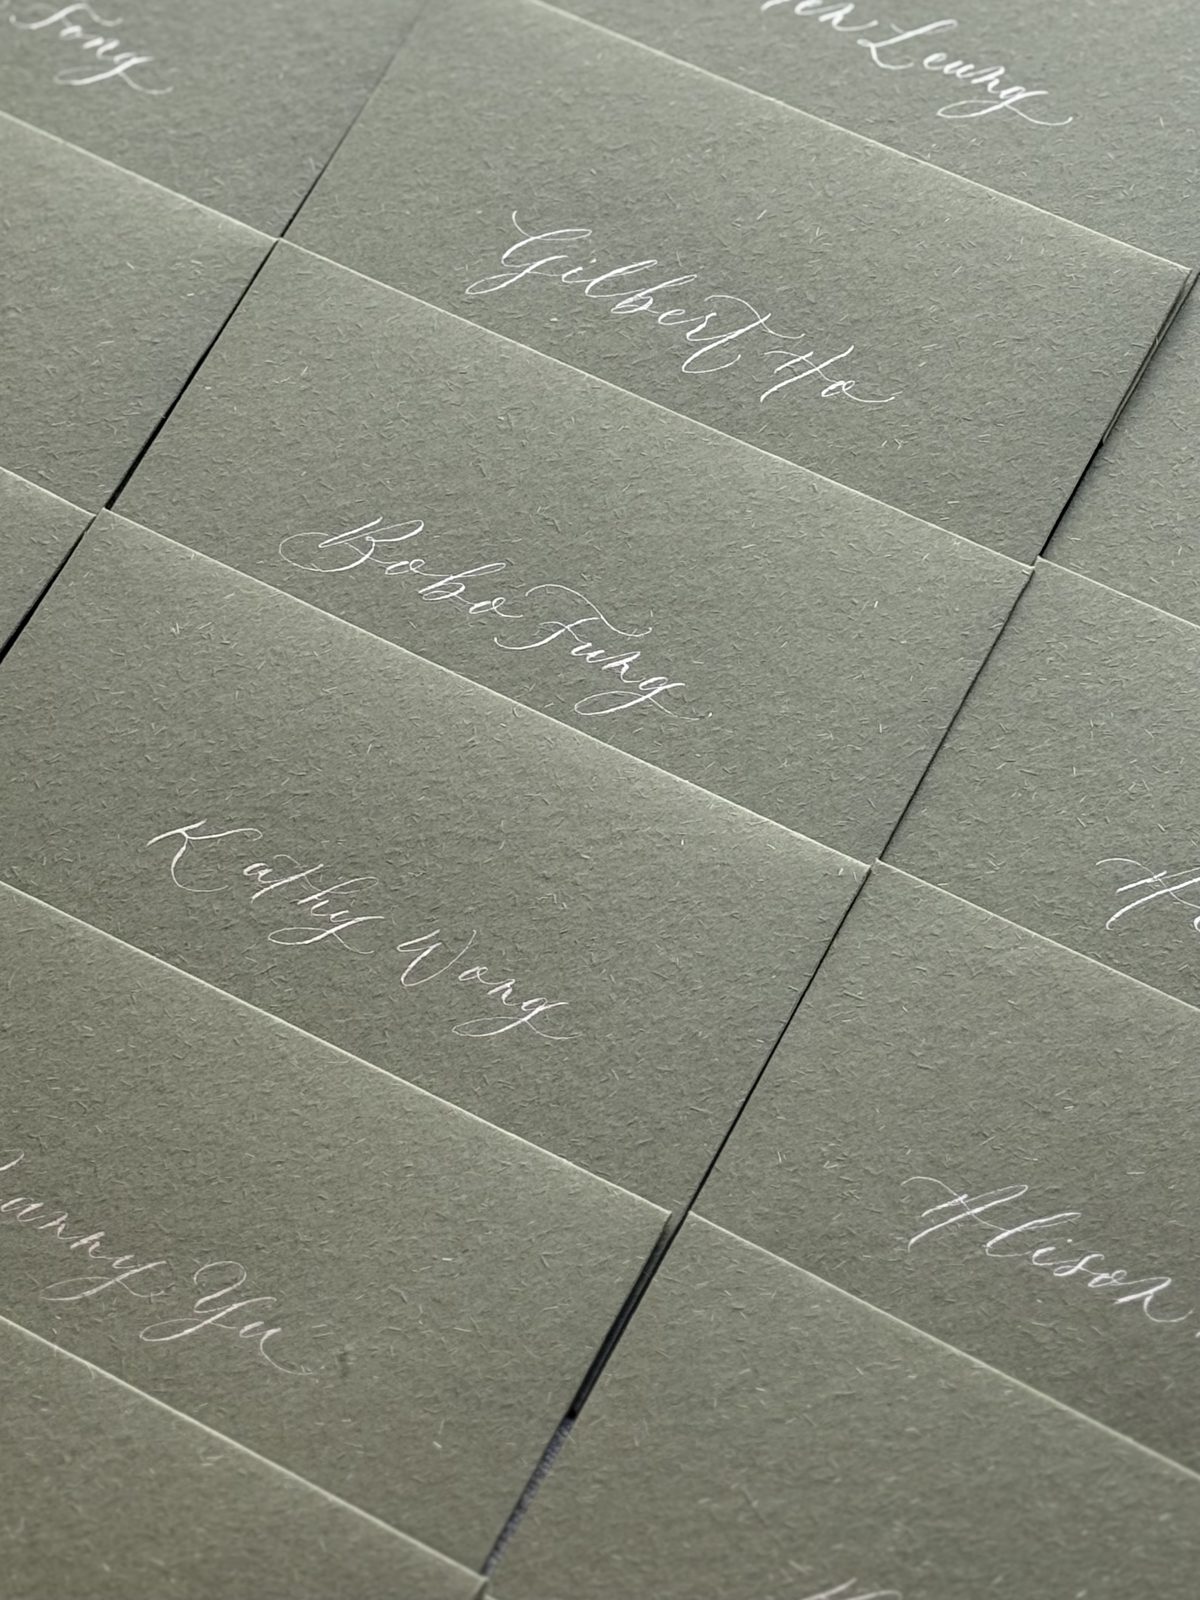 Fong
Leung
Gilbert Ho
Bobo Fung
Kathy Wong
Yu
Alison